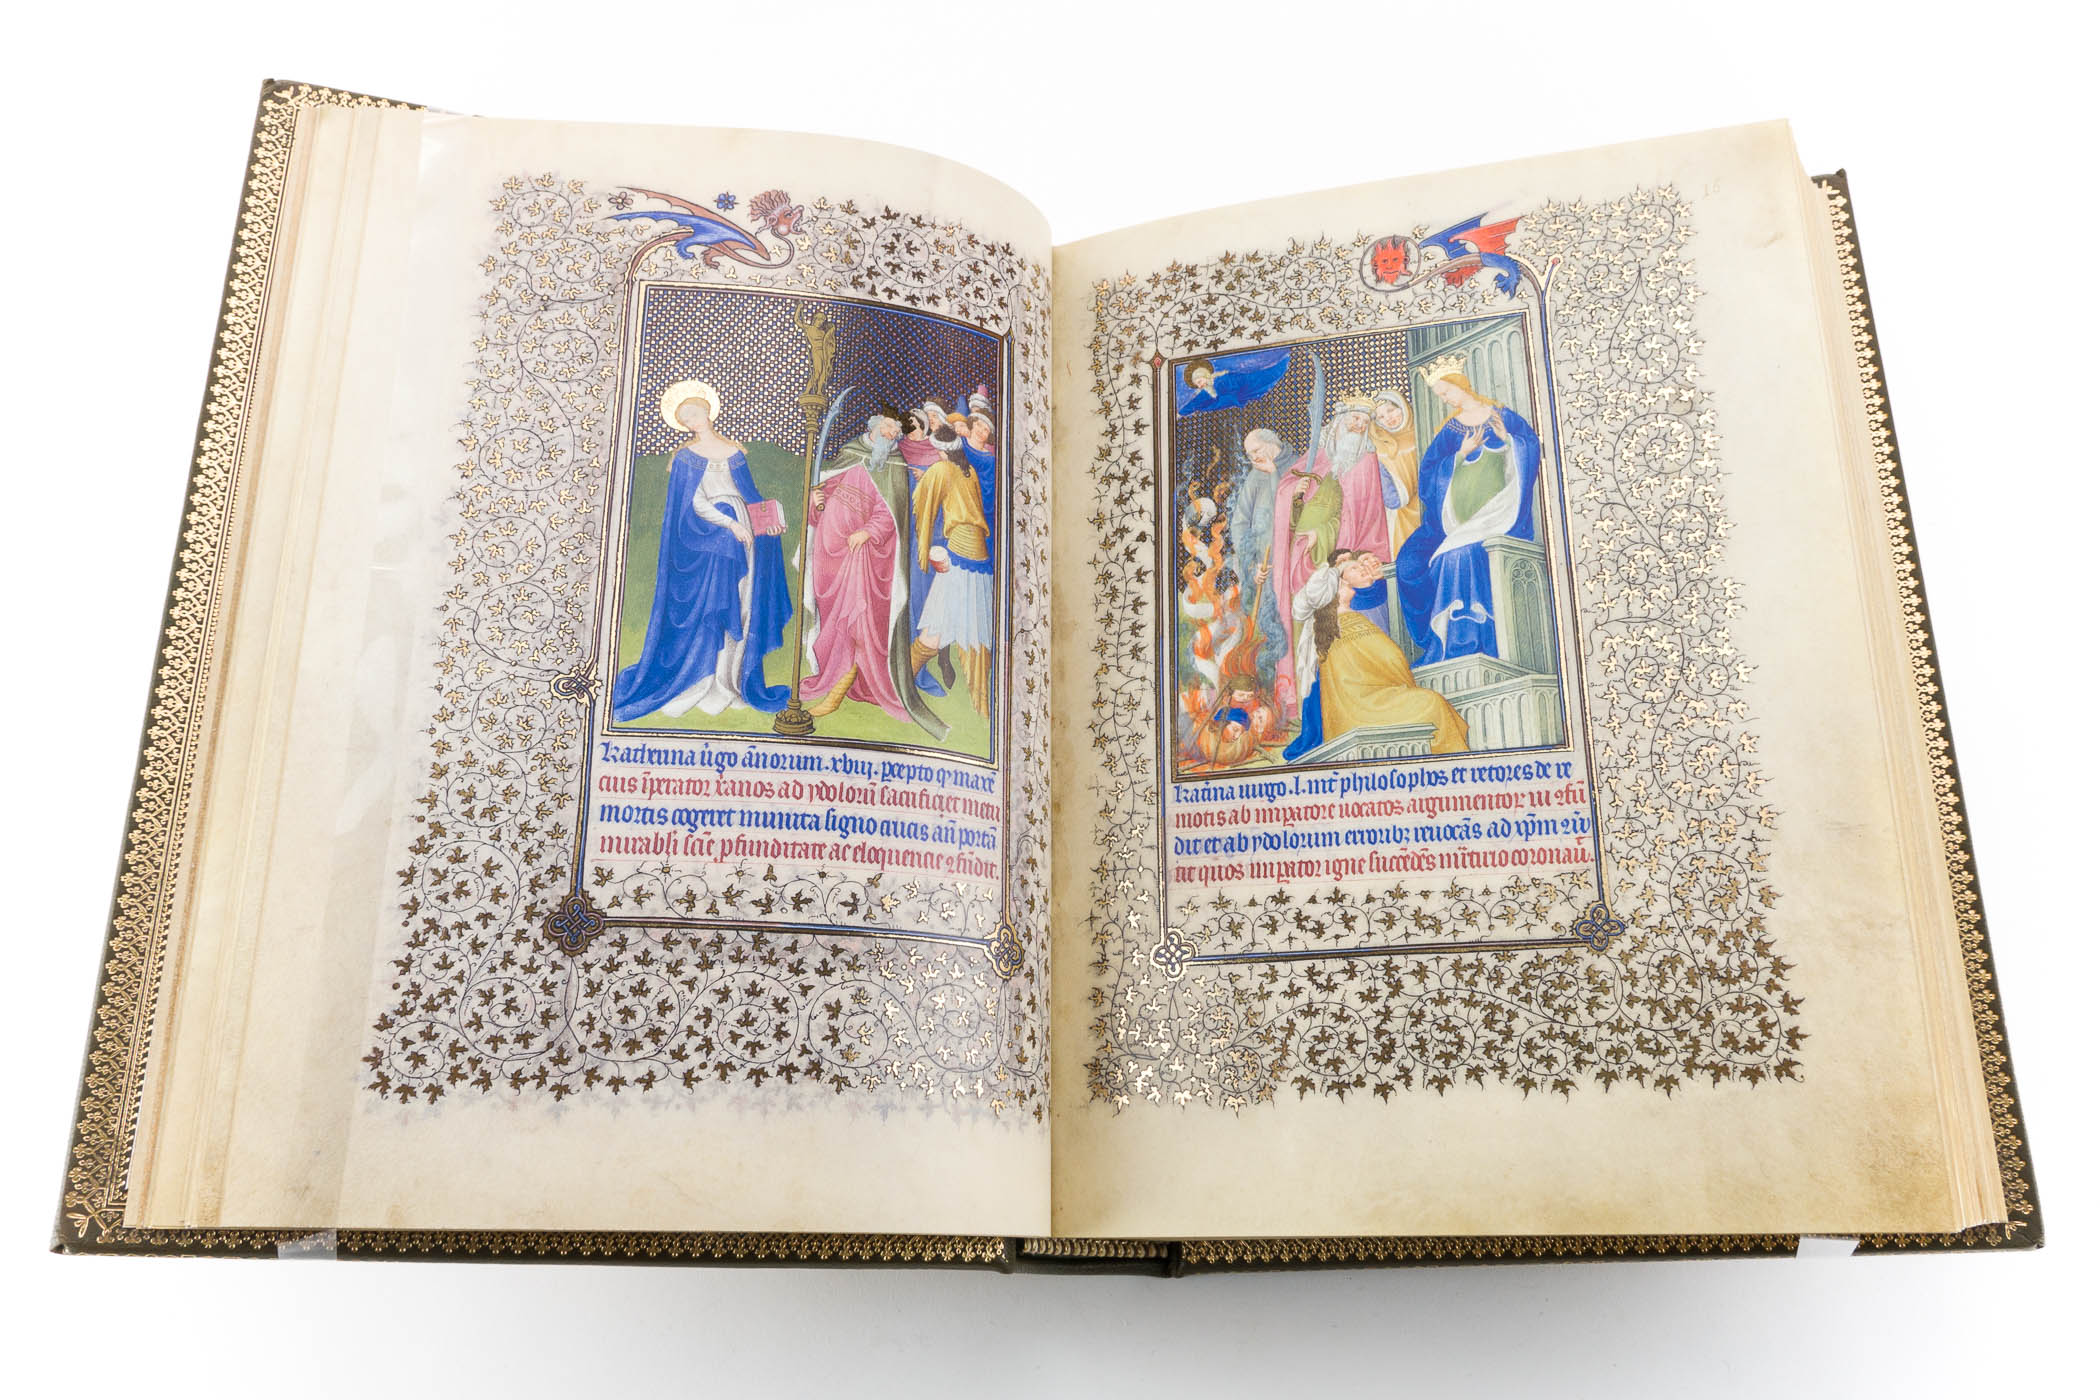 Katherina v̄go ān̄orum .xviij. p̄cepto ꝙ maxē
cius īperator x̄anos ad ydolorū sacrificiē metu
mortis cogeret munita signo crucis an̄ portā
mirabili sciē ꝓfunditate ac eloquencie ꝯfūdit.
16
Kat̄ina uirgo .l. int̄ philosophos et retores de re
motis ab imꝑatore uocatos argumentoꝝ ui ꝯfū
dit et ab ydolorum erroribꝫ reuocās ad xp̄m ꝯūr̄
tit quos imꝑator igne succēdēs mr̄tirio coronaū.